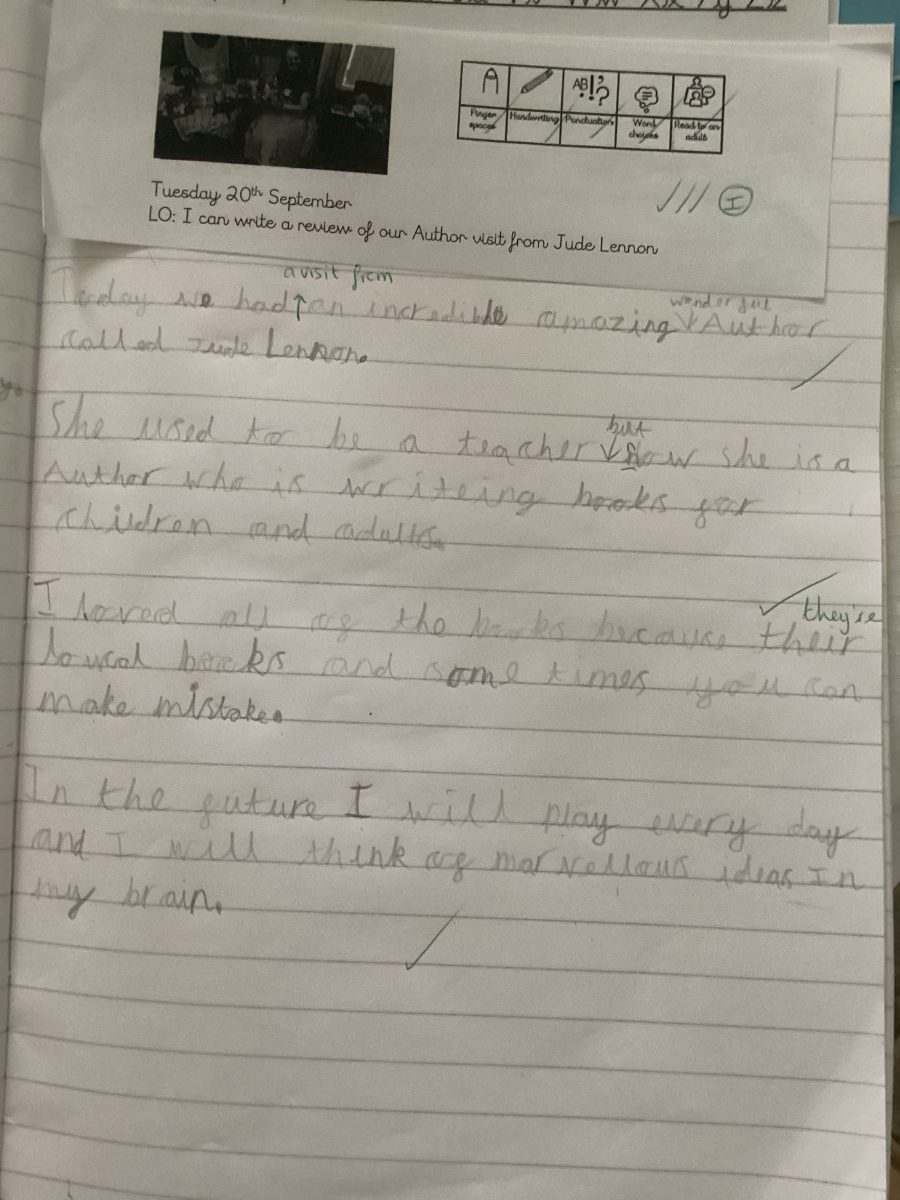 Finger spaces
Handwriting
AB!? Punctuation
Word choices
Read to an adult
Tuesday 20th September
LO: I can write a review of our Author visit from Jude Lennon
I
a visit from
wonderful
Today we had ↑ an incredible amazing ↓ Author
called Jude Lennon.
but
She used to be a teacher ↓ now she is a
Author who is writeing books for
children and adults.
they're
I loved all of the books because their
books and some times you can
make mistake.
In the future I will play every day
and I will think of marvellous ideas In
my brain.